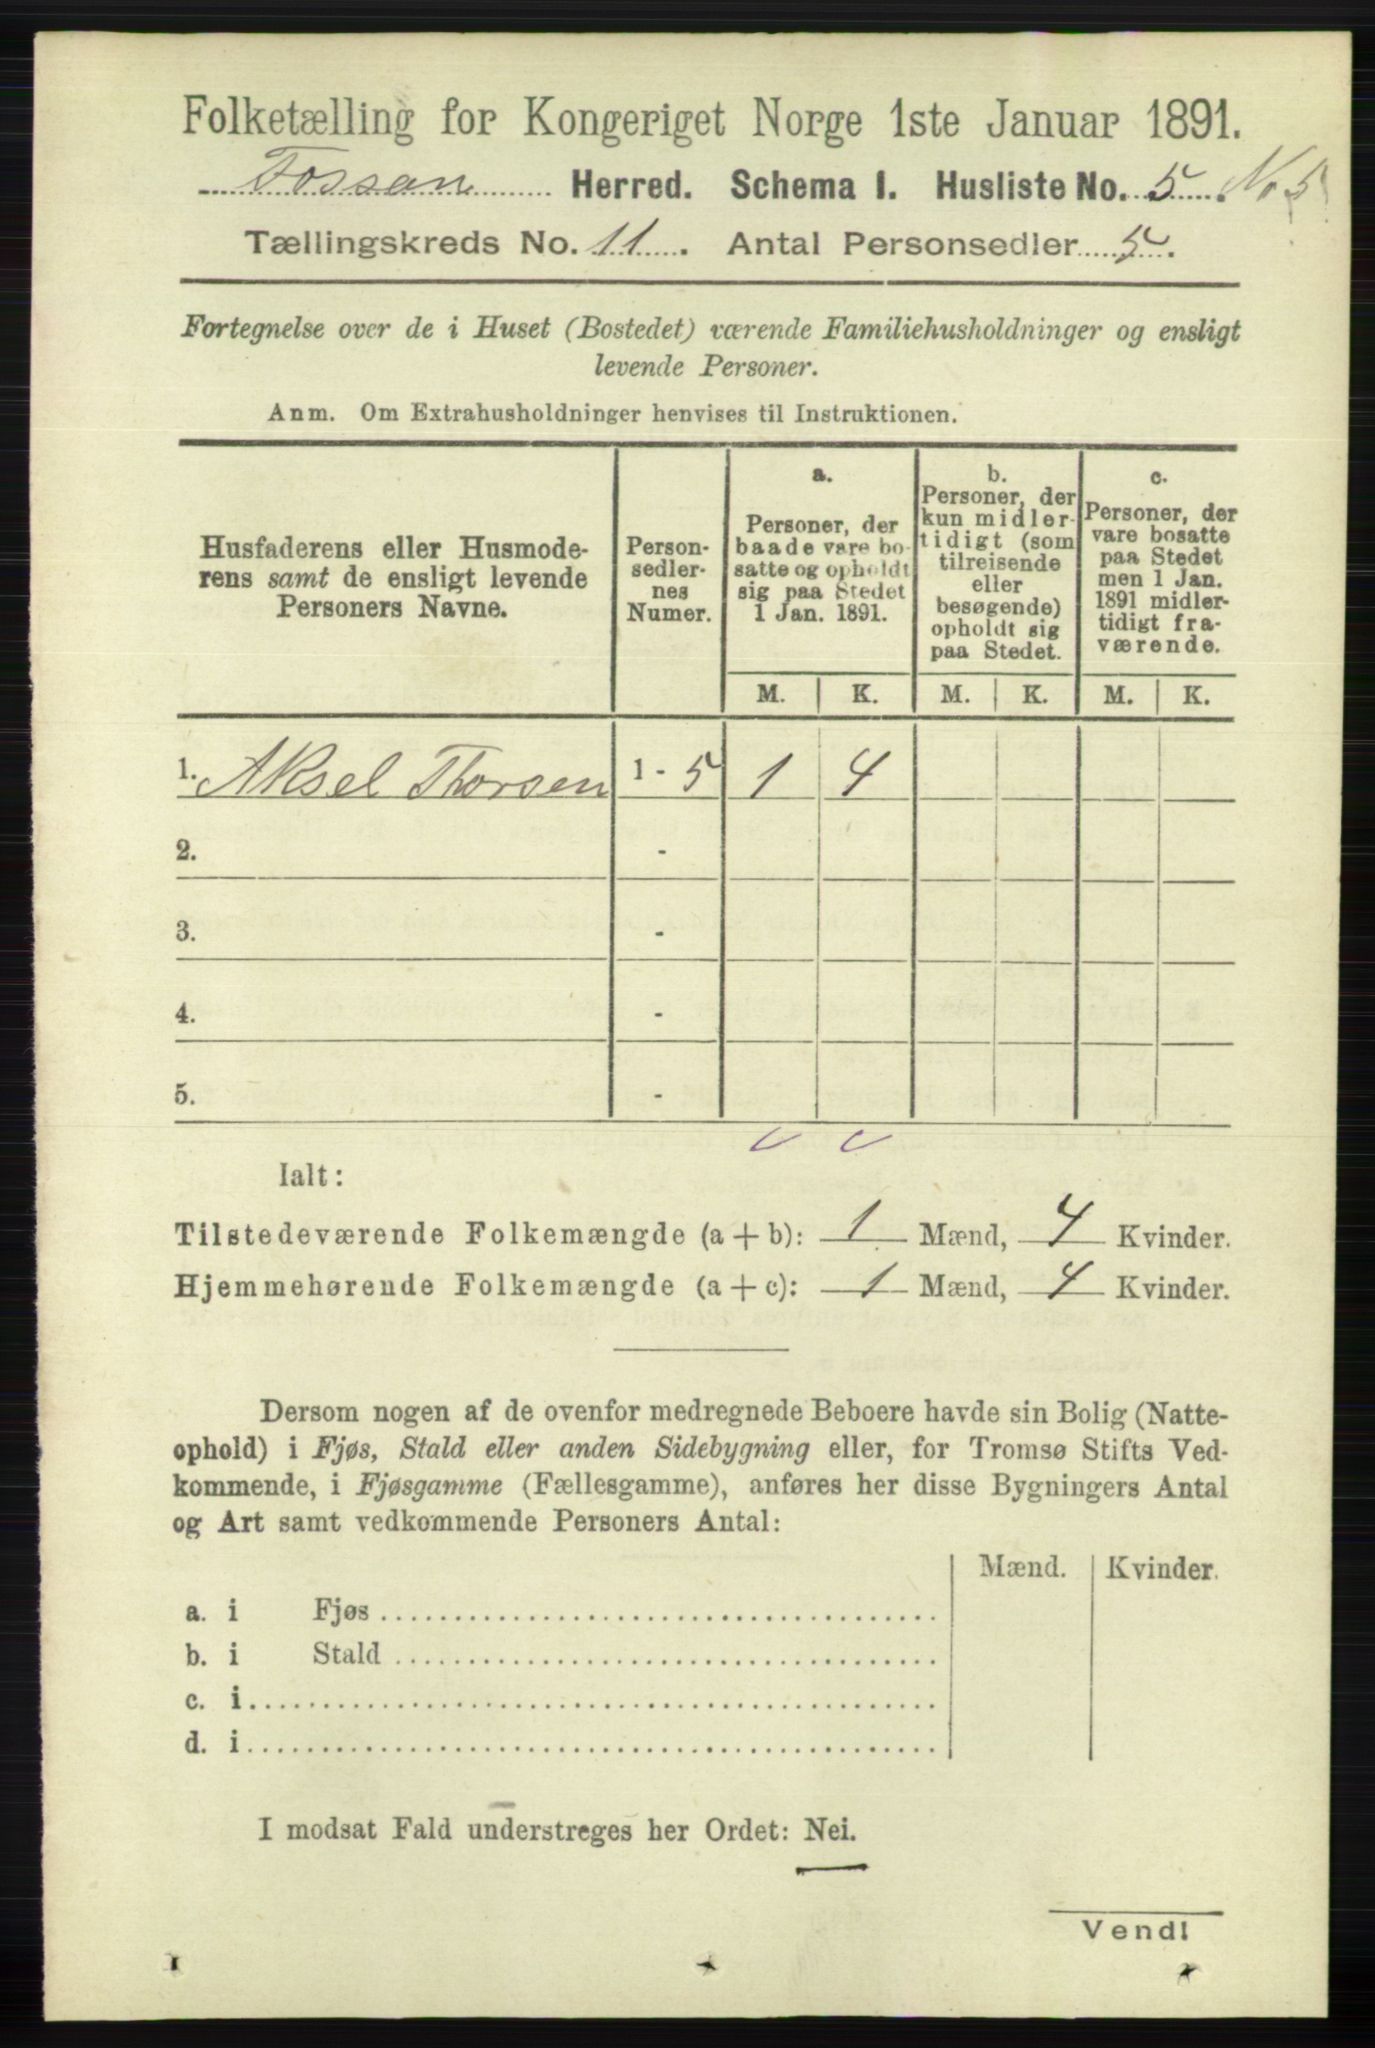 Folketælling for Kongeriget Norge 1ste Januar 1891.
Fossan Herred. Schema I. Husliste No. 5. No 5
Tællingskreds No. 11. Antal Personsedler 5.
Fortegnelse over de i Huset (Bostedet) værende Familiehusholdninger og ensligt
levende Personer.
Anm. Om Extrahusholdninger henvises til Instruktionen.
Husfaderens eller Husmode-
rens samt de ensligt levende
Personers Navne.
Person-
sedler-
nes
Numer.
a.
Personer, der
baade vare bo-
satte og opholdt
sig paa Stedet
1 Jan. 1891.
b.
Personer, der
kun midler-
tidigt (som
tilreisende
eller
besøgende)
opholdt sig
paa Stedet.
c.
Personer, der
vare bosatte
paa Stedet
men 1 Jan.
1891 midler-
tidigt fra-
værende.
M. K. M. K. M. K.
1. Aksel Thorsen 1 - 5 1 4
2. -
3. -
4. -
5. -
Ialt:
Tilstedeværende Folkemængde (a + b): 1 Mænd, 4 Kvinder.
Hjemmehørende Folkemængde (a + c): 1 Mænd, 4 Kvinder.
Dersom nogen af de ovenfor medregnede Beboere havde sin Bolig (Natte-
ophold) i Fjøs, Stald eller anden Sidebygning eller, for Tromsø Stifts Ved-
kommende, i Fjøsgamme (Fællesgamme), anføres her disse Bygningers Antal
og Art samt vedkommende Personers Antal:
Mænd. Kvinder.
a. i Fjøs
b. i Stald
c. i
d. i
I modsat Fald understreges her Ordet: Nei.
Vend!